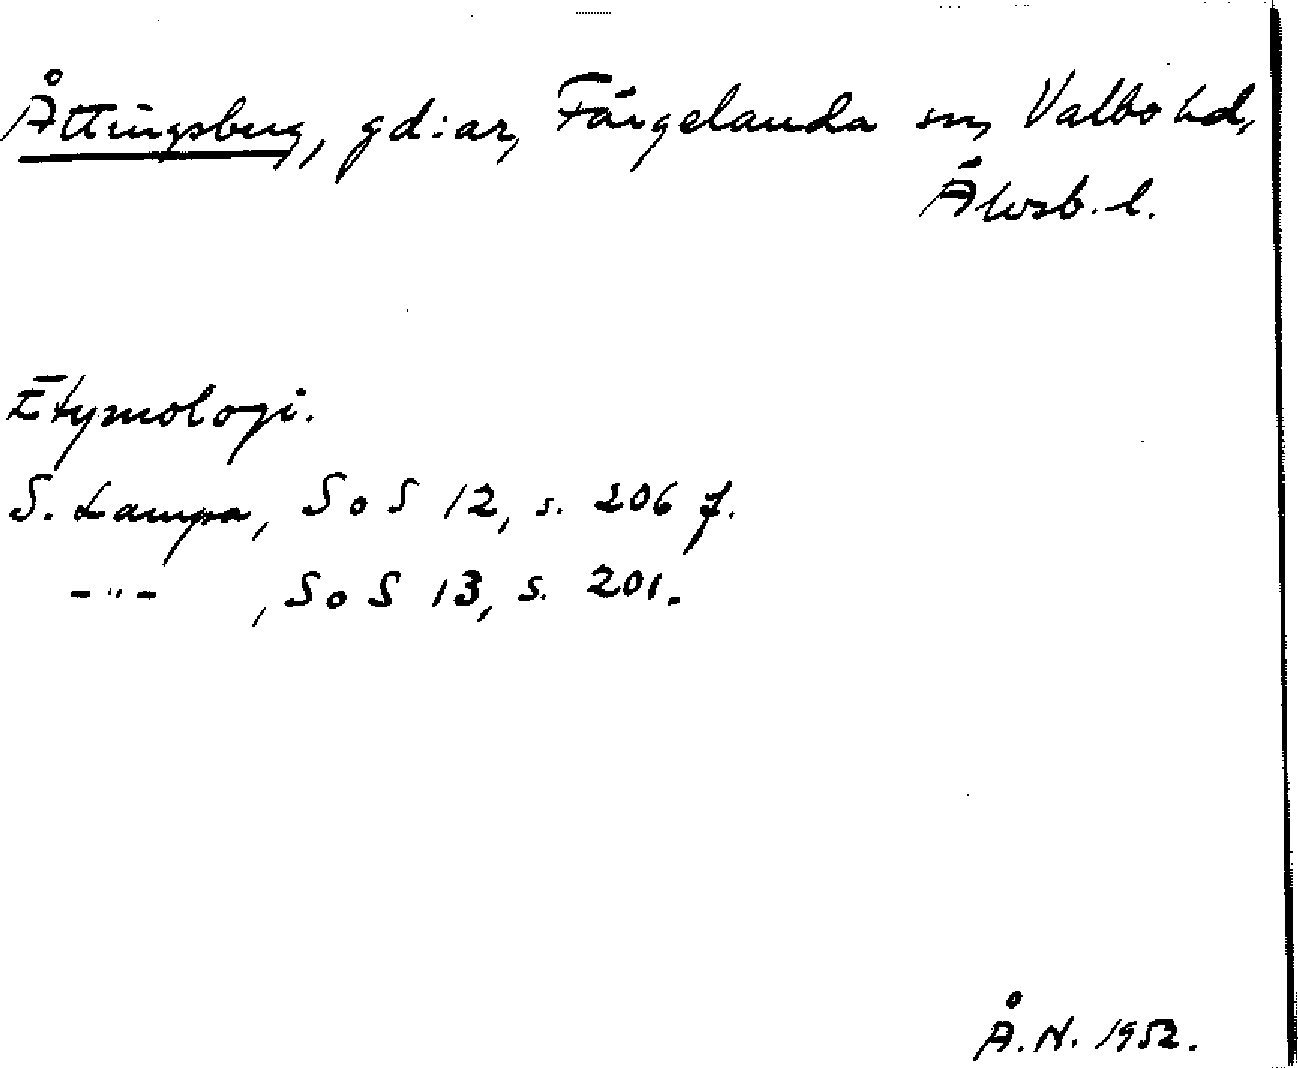 Åttingsberg, gd:ar, Färgelanda sn, Valbo hd,
Älvsb. l.
Etymologi.
S. Lampa, SoS 12, s. 206 f.
-"- , SoS 13, s. 201.
Å.N. 1952.